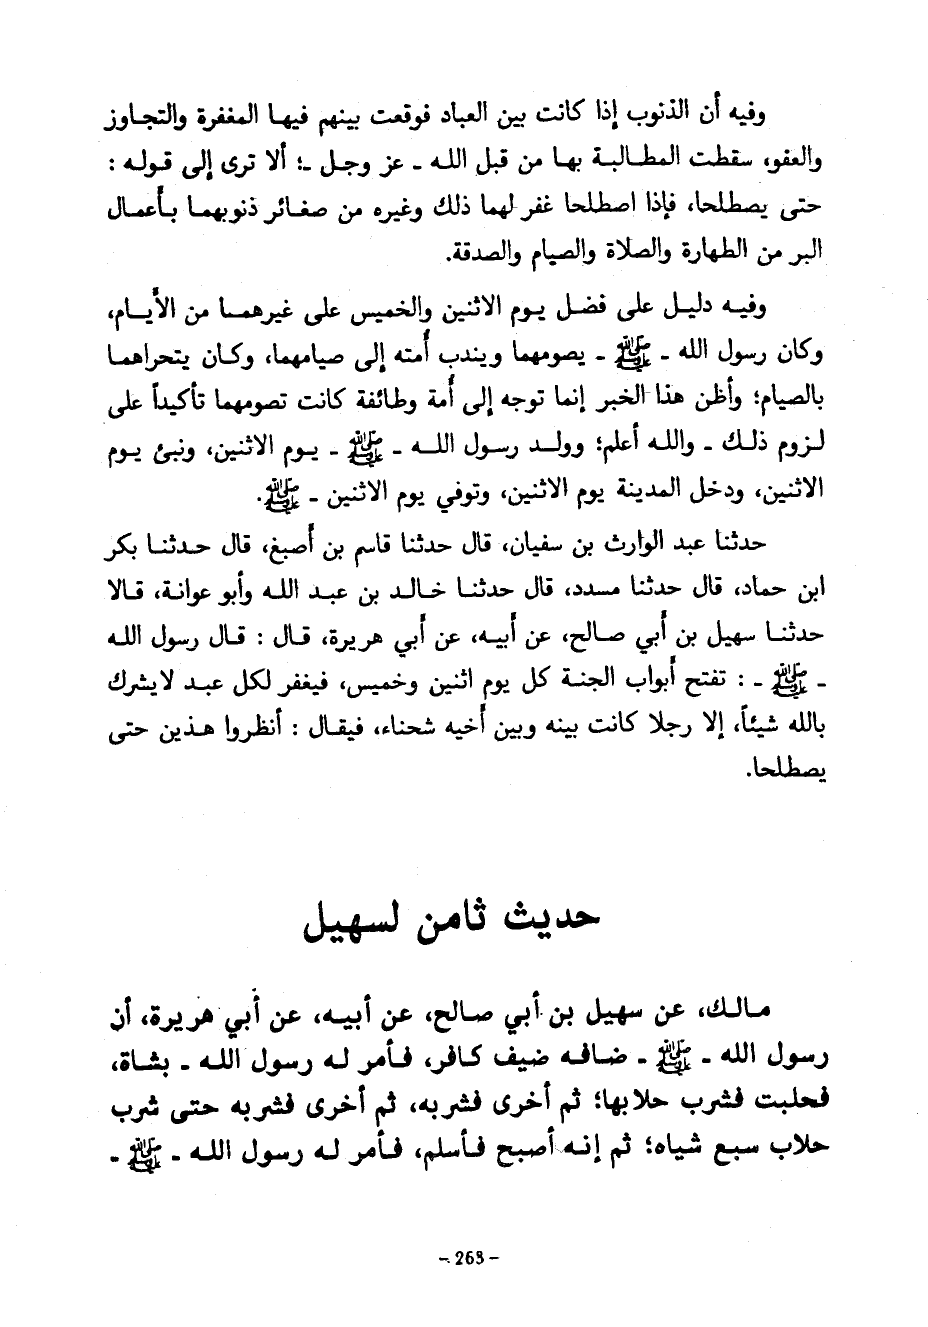 وفيه أن الذنوب إذا كانت بين العباد فوقعت بينهم فيها المغفرة والتجاوز
والعفو، سقطت المطالبة بها من قبل الله ـ عز وجل ـ؛ ألا ترى إلى قوله :
حتى يصطلحا، فإذا اصطلحا غفر لهما ذلك وغيره من صغائر ذنوبهما بأعمال
البر من الطهارة والصلاة والصيام والصدقة.
وفيه دليل على فضل يوم الاثنين والخميس على غيرهما من الأيام،
وكان رسول الله ـ ﷺ ـ يصومهما ويندب أمته إلى صيامهما، وكان يتحراهما
بالصيام؛ وأظن هذا الخبر إنما توجه إلى أمة وطائفة كانت تصومهما تأكيداً على
لزوم ذلك ـ والله أعلم؛ وولد رسول الله ـ ﷺ ـ يوم الاثنين، ونبئ يوم
الاثنين، ودخل المدينة يوم الاثنين، وتوفي يوم الاثنين ـ ﷺ.
حدثنا عبد الوارث بن سفيان، قال حدثنا قاسم بن أصبغ، قال حدثنا بكر
ابن حماد، قال حدثنا مسدد، قال حدثنا خالد بن عبد الله وأبو عوانة، قالا
حدثنا سهيل بن أبي صالح، عن أبيه، عن أبي هريرة، قال : قال رسول الله
ـ ﷺ ـ : تفتح أبواب الجنة كل يوم اثنين وخميس، فيغفر لكل عبد لايشرك
بالله شيئاً، إلا رجلا كانت بينه وبين أخيه شحناء، فيقال : أنظروا هذين حتى
يصطلحا.
حديث ثامن لسهيل
مالك، عن سهيل بن أبي صالح، عن أبيه، عن أبي هريرة، أن
رسول الله ـ ﷺ ـ ضافه ضيف كافر، فأمر له رسول الله ـ بشاة،
فحلبت فشرب حلابها؛ ثم أخرى فشربه، ثم أخرى فشربه حتى شرب
حلاب سبع شياه؛ ثم إنه أصبح فأسلم، فأمر له رسول الله ـ ﷺ ـ
- 263 -